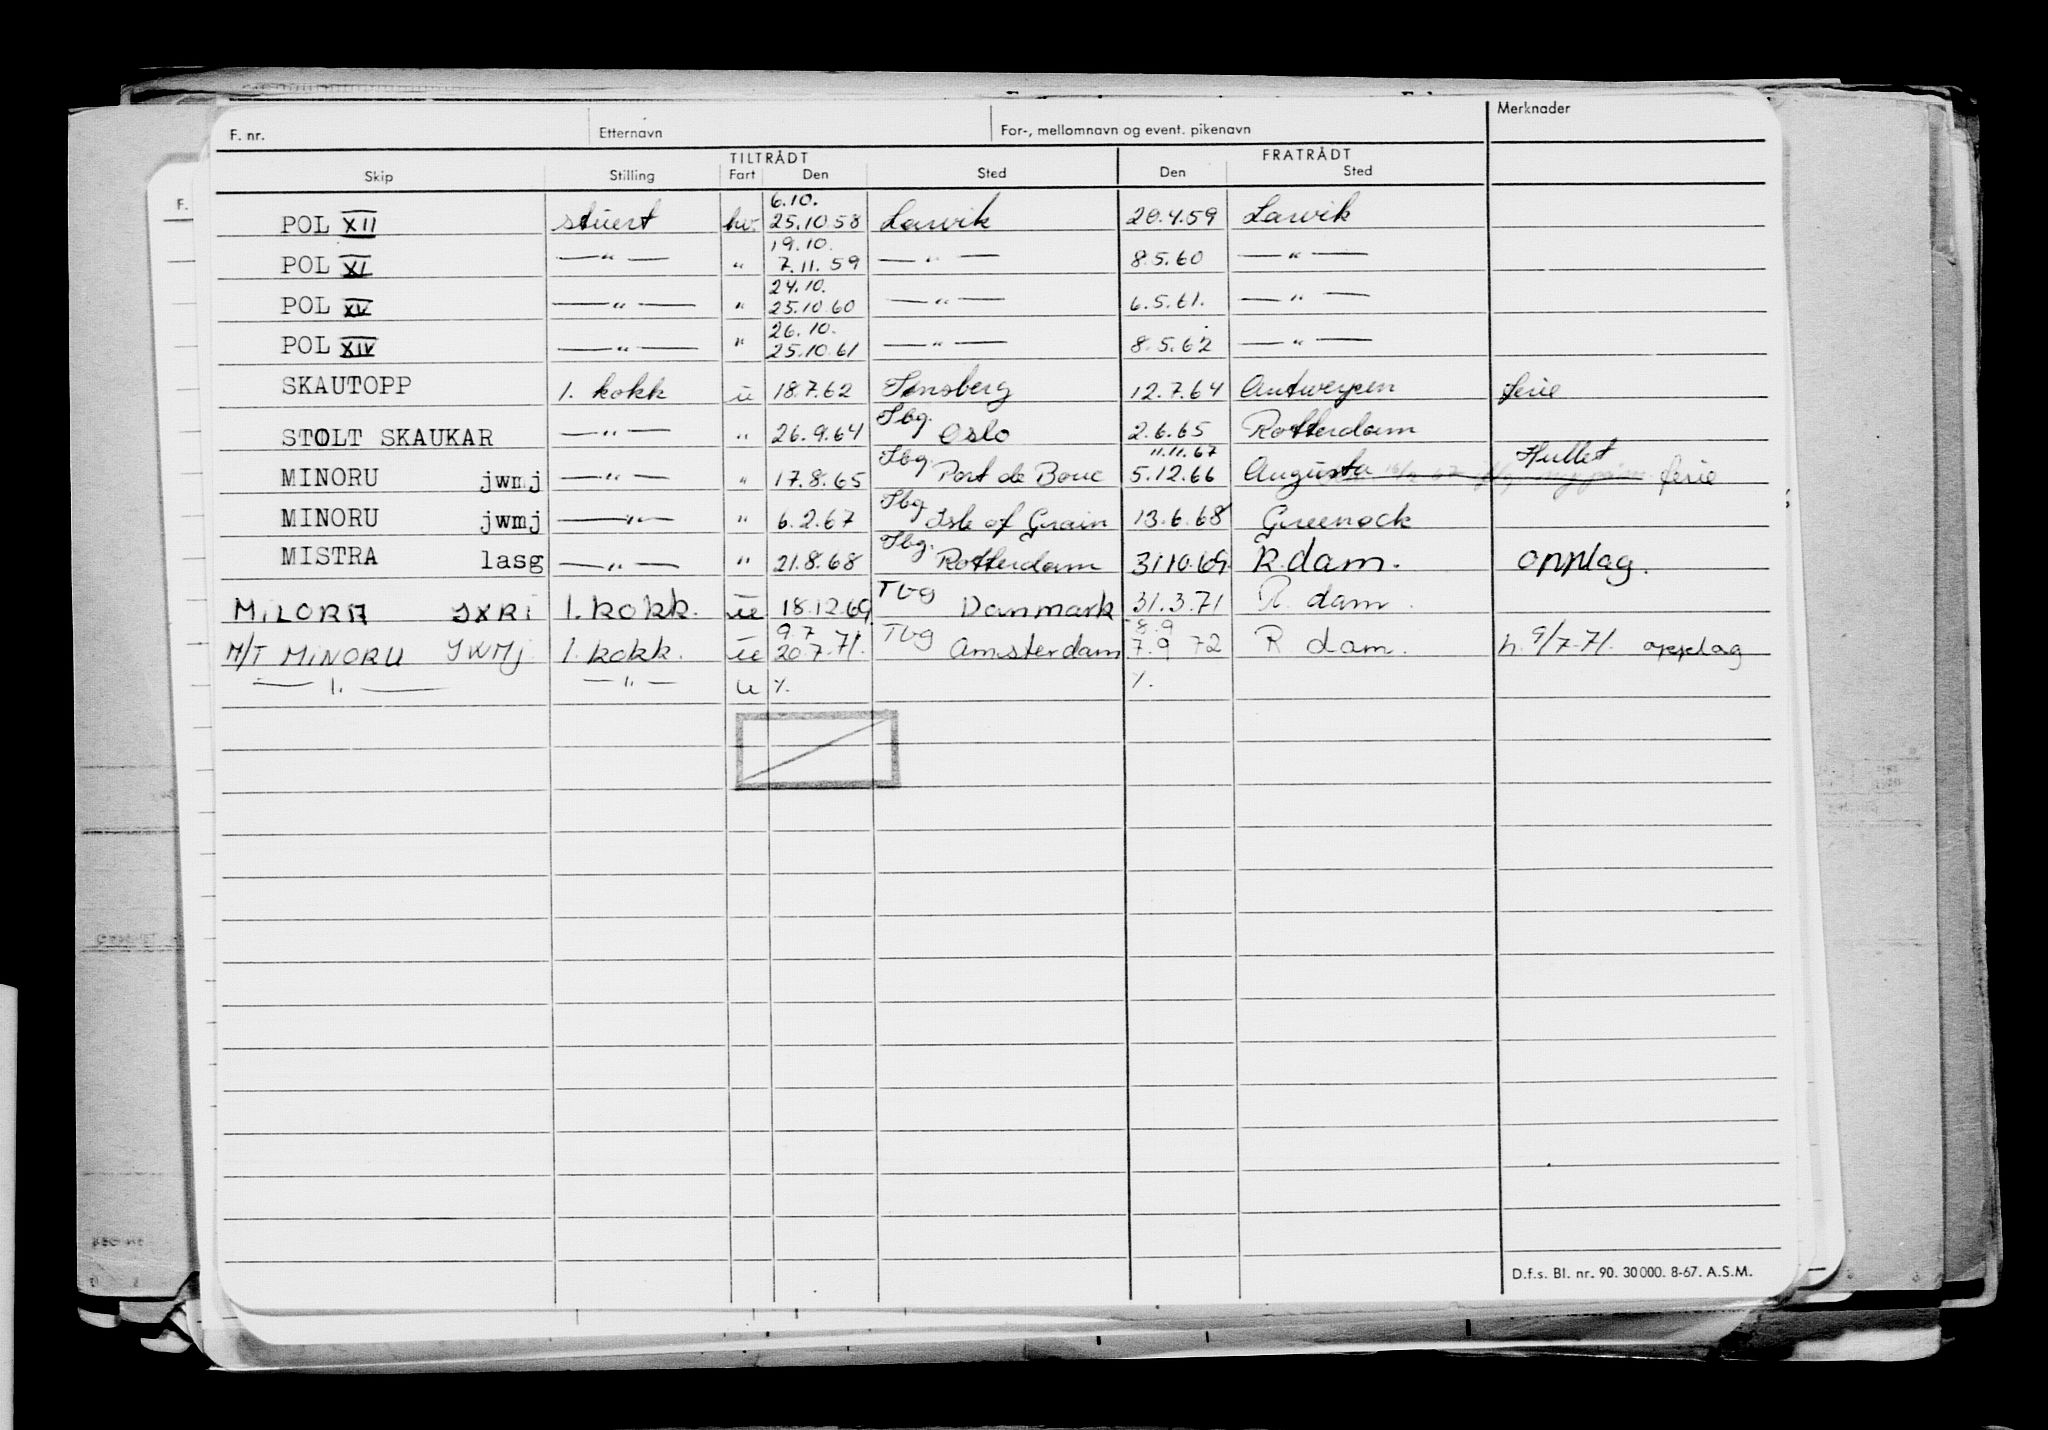 F. nr. Etternavn For-, mellomnavn og event. pikenavn Merknader
TILTRÅDT FRATRÅDT
Skip Stilling Fart Den Sted Den Sted
6.10.
POL XII stuert hv. 25.10.58 Larvik 20.4.59 Larvik
19.10.
POL XI —"— " 7.11.59 —"— 8.5.60 —"—
24.10.
POL XV —"— " 25.10.60 —"— 6.5.61. —"—
26.10.
POL XIV —"— " 25.10.61 —"— 8.5.62 —"—
SKAUTOPP 1. kokk u 18.7.62 Tønsberg 12.7.64 Antwerpen ferie
STOLT SKAUKAR —"— " 26.9.64 Tbg. Oslo 2.6.65 Rotterdam
11.11.67 Hullet
MINORU jwmj —"— " 17.8.65 Tbg. Port de Bouc 5.12.66 Augusta ferie
MINORU jwmj —"— " 6.2.67 Tbg Isle of Grain 13.6.68 Greenock
MISTRA lasg —"— " 21.8.68 Tbg. Rotterdam 31.10.69 R.dam. opplag.
MILORA JXRI 1. kokk. ue 18.12.69 Tbg Danmark 31.3.71 R. dam.
9.7 8.9
M/T MINORU JWMJ 1. kokk. ue 20.7.71. Tbg Amsterdam 7.9 72 R. dam. h. 9/7-71. opplag
—"— —"— u %. %.
D.f.s. Bl. nr. 90. 30000. 8-67. A.S.M.